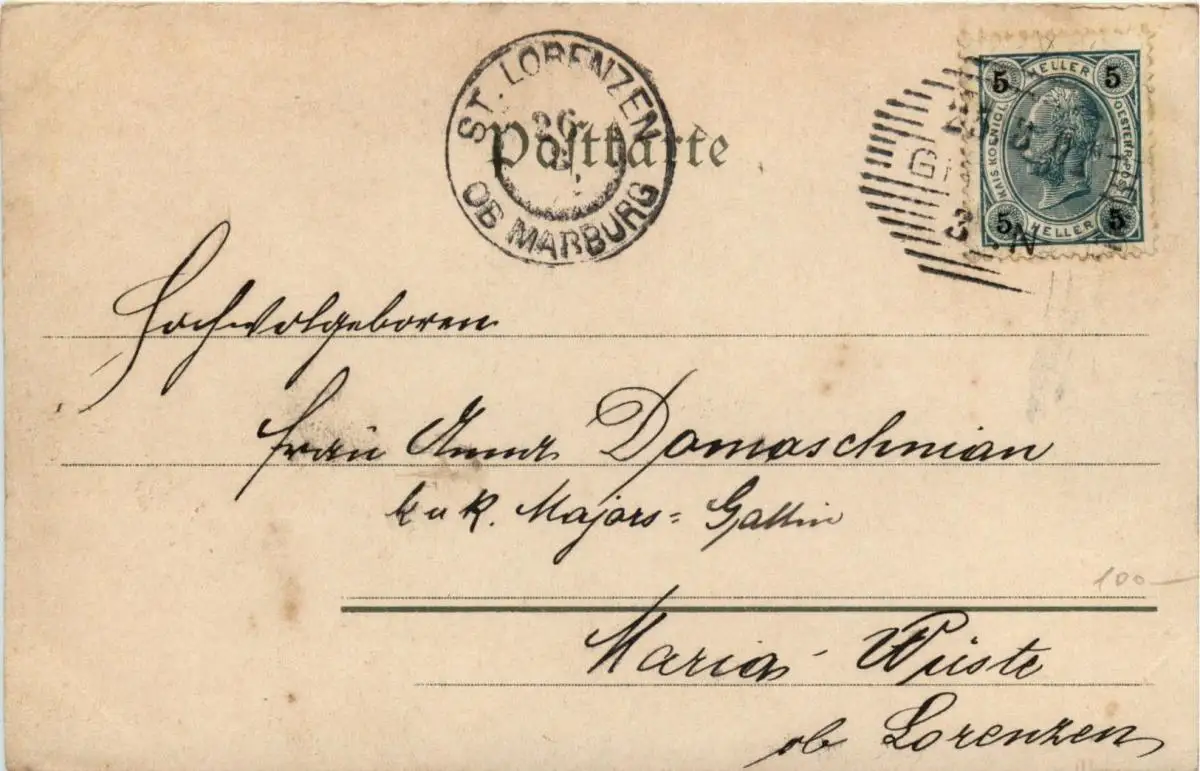 ST. LORENZEN
26
OB MARBURG
Postkarte
5 HELLER 5
KAIS. KOENIGL. OESTERR. POST
5 HELLER 5
Hochwolgeboren
Frau Anna Domaschnian
k u k. Majors= Gattin
100—
Maria Wüste
ob Lorenzen